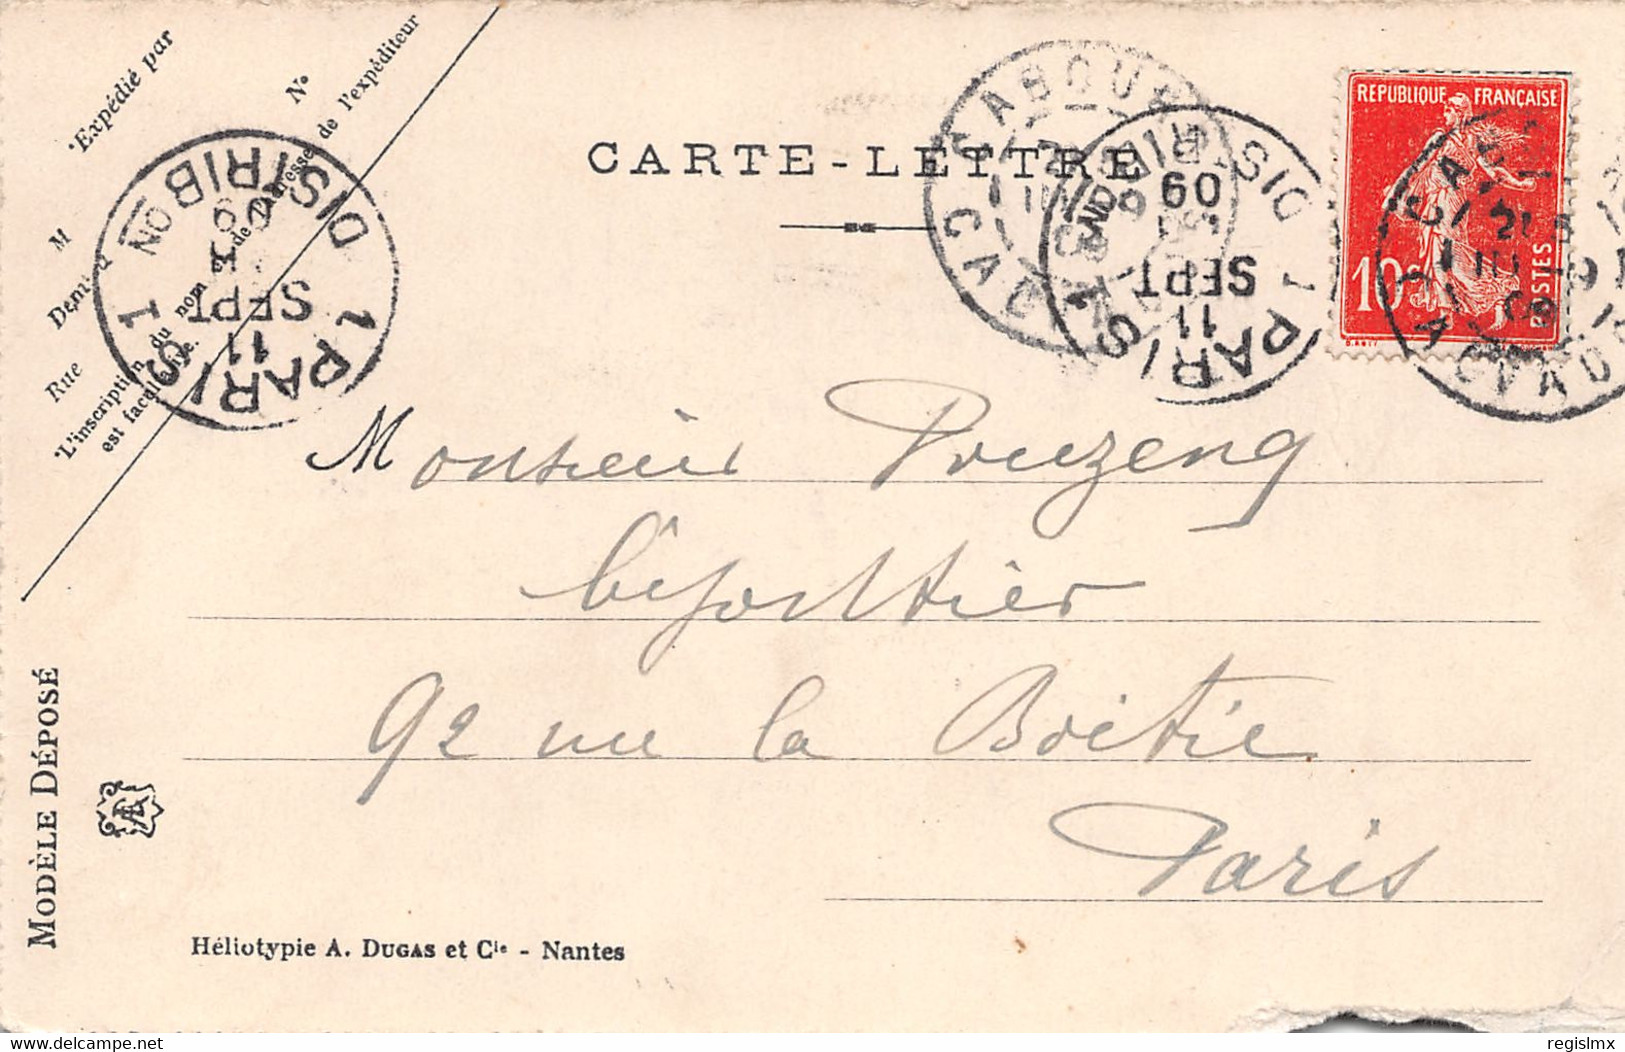 "Expédié par
N°
M
Rue
"L'inscription du nom et de l'adresse de l'expéditeur
est facultative.
CARTE-LETTRE
REPUBLIQUE FRANÇAISE
10c
POSTES
CABOURG
CALVADOS
PARIS 1 DISTRIBON
11
SEPT
09
1 PARIS 1 DISTRIBON
11
SEPT
09
Monsieur Pouzeng
Bijoutier
92 rue la Boëtie
Paris
MODÈLE DÉPOSÉ
Héliotypie A. DUGAS et Cie - Nantes
www.delcampe.net
regislmx